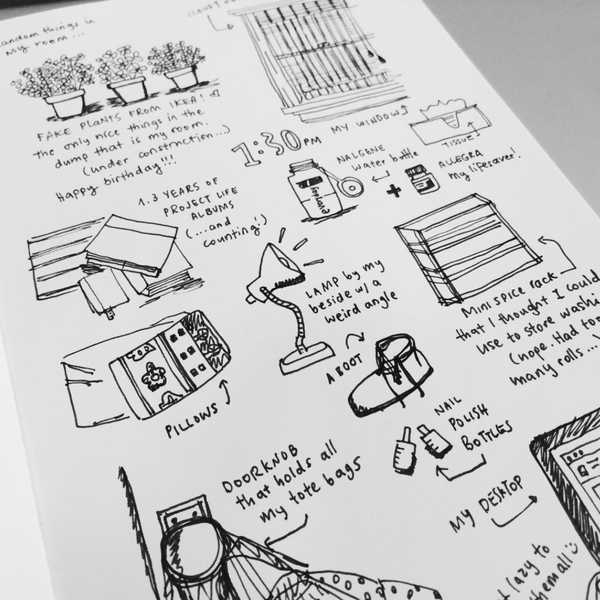 random things in
my room...
FAKE PLANTS FROM IKEA!
the only nice things in the
dump that is my room.
(under construction...)
Happy birthday!!!
1:30 PM
MY WINDOW
TISSUE
NALGENE
water bottle
everyday
+
ALLEGRA
my lifesaver!
1.3 YEARS OF
PROJECT LIFE
ALBUMS
(...and
counting!)
LAMP by my
beside w/ a
weird angle
Mini spice rack
that I thought I could
use to store washi
(nope. Had too
many rolls...)
PILLOWS
A BOOT
NAIL
POLISH
BOTTLES
DOORKNOB
that holds all
my tote bags
MY DESKTOP
lazy to
them all